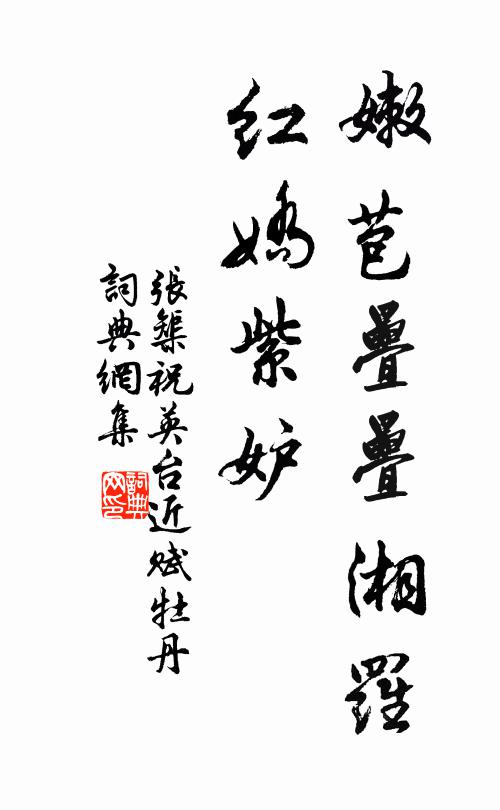 嫩苞疊疊湘羅
紅嬌紫妒
張榘祝英台近賦牡丹
詞典網集
詞典网印